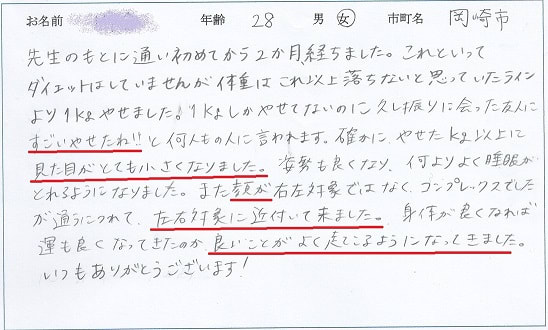 お名前 年齢 28 男 女 市町名 岡崎市
先生のもとに通い初めてから2か月経ちました。これといって
ダイエットはしていませんが体重はこれ以上落ちないと思っていたライン
より1kgやせました。1kgしかやせてないのに久し振りに会った友人に
すごいやせたね!!と何人もの人に言われます。確かにやせたkg以上に
見た目がとても小さくなりました。姿勢も良くなり、何よりよく睡眠が
とれるようになりました。また顔が右左対象ではなく、コンプレックスでした
が通うにつれて、左右対象に近付いて来ました。身体が良くなれば
運も良くなってきたのか、良いことがよく起こるようになってきました。
いつもありがとうございます!